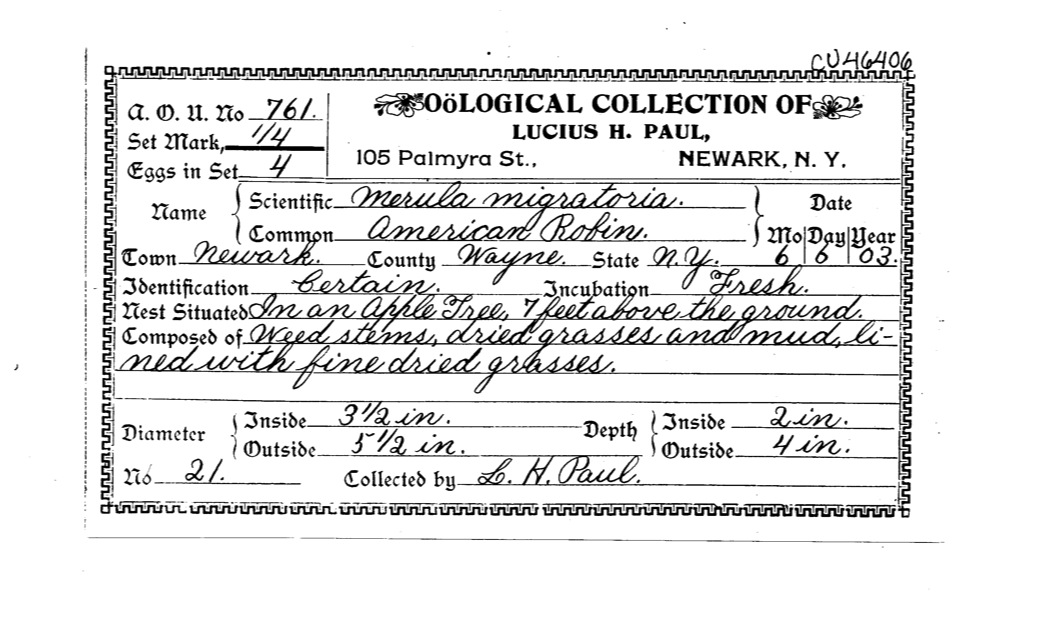 CU46406
A. O. U. No 761.
Set Mark, 1/4
Eggs in Set 4
OöLOGICAL COLLECTION OF
LUCIUS H. PAUL,
105 Palmyra St., NEWARK, N. Y.
Name
Scientific Merula migratoria.
Common American Robin.
Date
Mo Day Year
6 6 03.
Town Newark. County Wayne. State N.Y.
Identification Certain. Incubation Fresh.
Nest Situated In an Apple Tree, 7 feet above the ground.
Composed of Weed stems, dried grasses and mud, li-
ned with fine dried grasses.
Diameter
Inside 3 1/2 in.
Outside 5 1/2 in.
Depth
Inside 2 in.
Outside 4 in.
No 21. Collected by L. H. Paul.